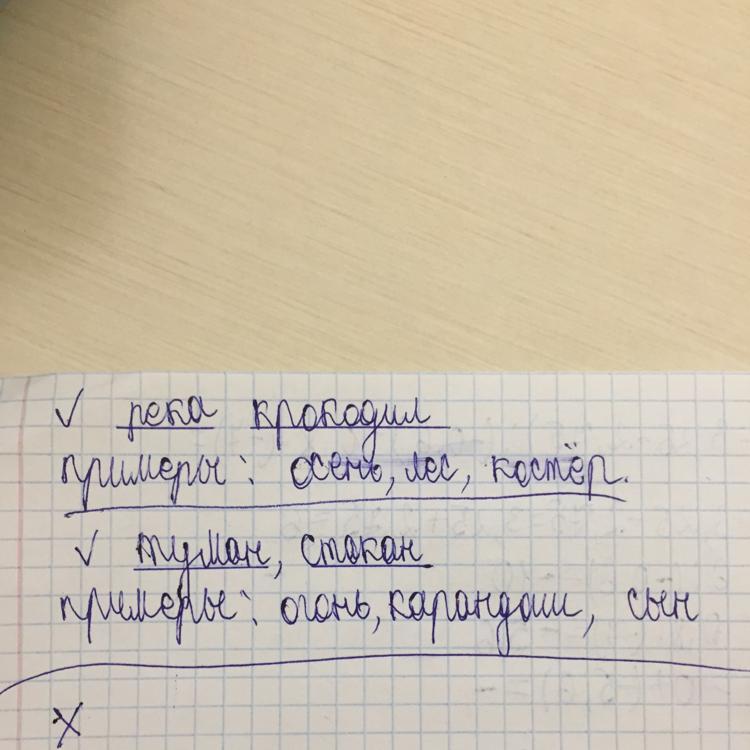 ✓ река крокодил
примеры: осень, лес, костёр.
✓ туман, стакан
примеры: огонь, карандаш, сын
X